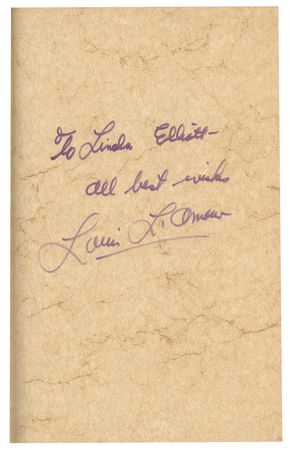 To Linda Elliott-
all best wishes
Louis L'Amour